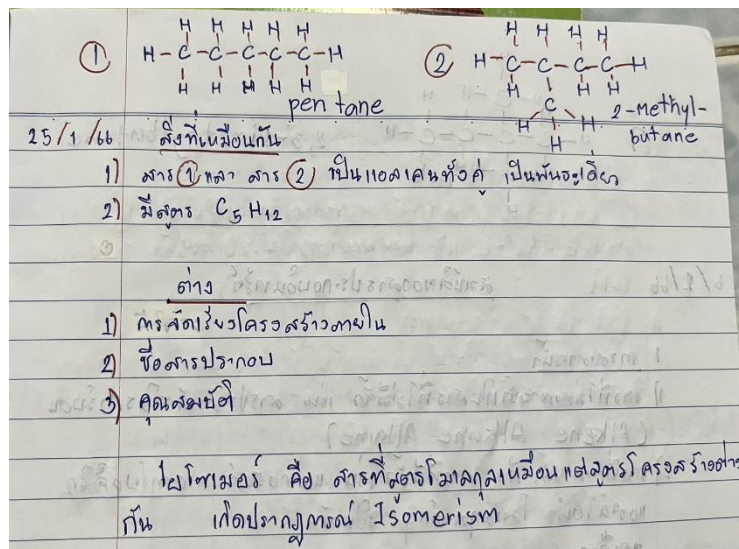 ① H H H H H
H-C-C-C-C-C-H
H H H H H
pentane
② H H H H
H-C-C-C-C-H
H H H
C
H H
H
2-methyl-
butane
25/1/66 สิ่งที่เหมือนกัน
1) สาร ① และ สาร ② เป็นแอลเคนทั้งคู่ เป็นพันธะเดี่ยว
2) มีสูตร C5H12
ต่าง
1) การจัดเรียงโครงสร้างภายใน
2) ชื่อสารประกอบ
3) คุณสมบัติ
ไอโซเมอร์ คือ สารที่สูตรโมเลกุลเหมือนแต่สูตรโครงสร้างต่าง
กัน เกิดปรากฏการณ์ Isomerism